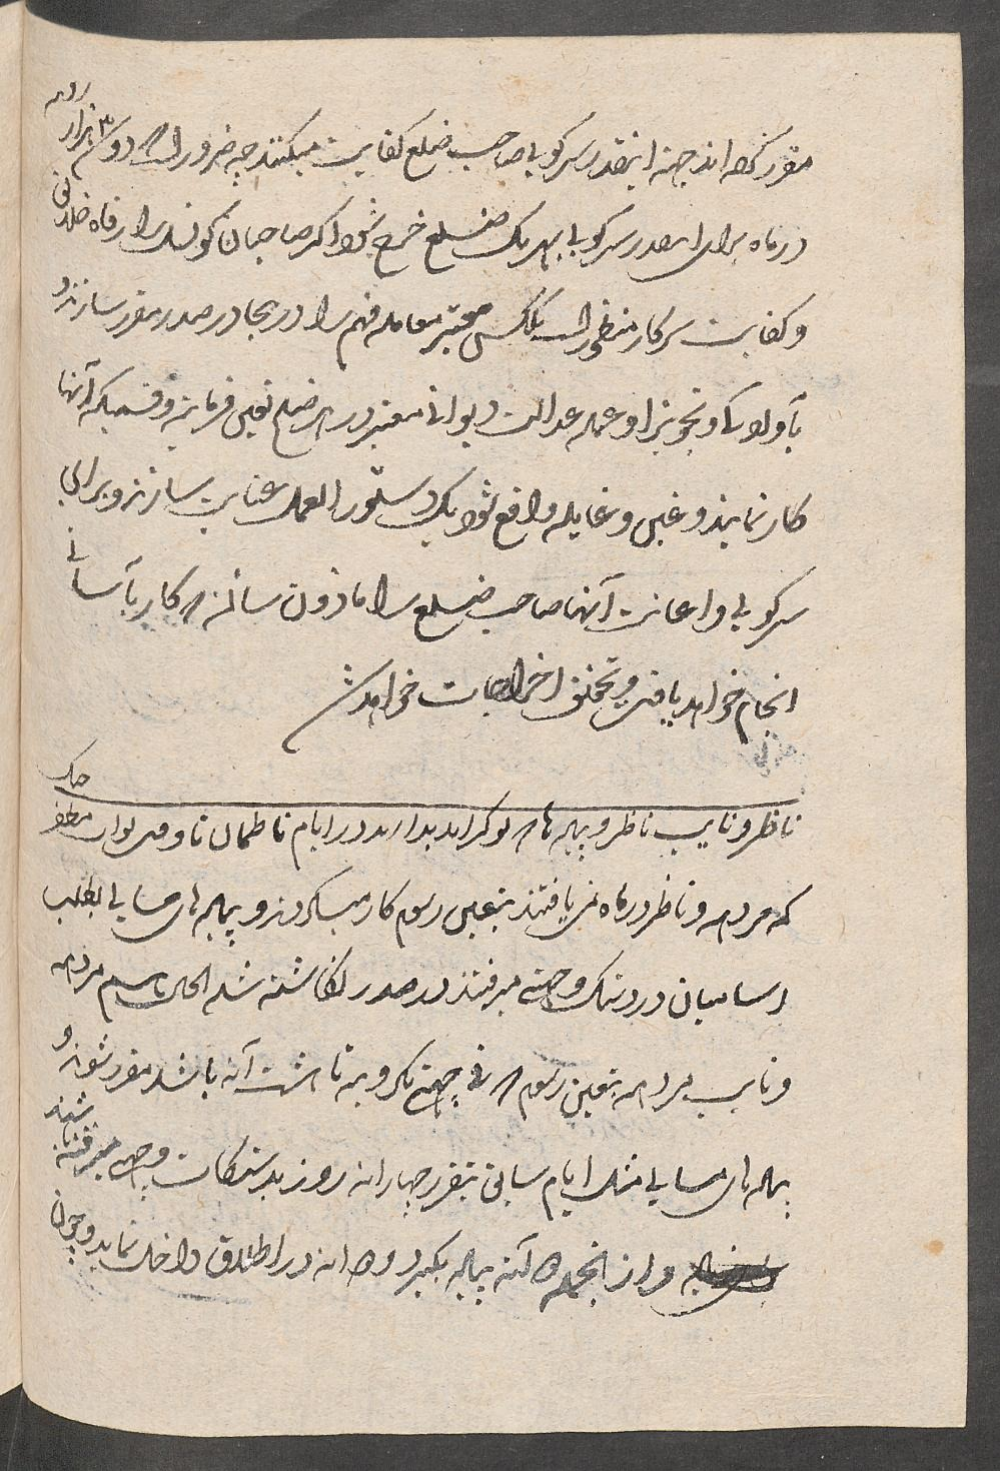 مقرر کرده اند جهة اینقدر سرکوبی صاحب ضلع کفایت میکند چه ضرور است که دو سه هزار روپیه
در ماه برای اینقدر سرکوبی بهر یک ضلع خرچ شود اگر صاحبان کونسل را رفاه خلایق
و کفایت سرکار منظور است یک کس معتبر معامله فهم را در اینجا در صدر مقرر سازند و
بآوردگی و تجویز او عمله عدالت دیوانی معتبر در هر ضلع تعین فرمایند وقتیکه آنها
کار نمایند و غبن و غایله واقع شود یک دستور العمل عنایت سازند و برای
سرکوبی و اعانت آنها صاحب ضلع را ماذون سازند که کار بآسانی
انجام خواهد یافت و تخفیف اخراجات خواهد شد
ناظر و نایب ناظر و پیاده ها که نوکر اند در ایام ناظمان تا وقت نواب مظفر جنگ
که مردهه و ناظر در ماه نمی یافتند بتعین رسوم کار میکردند و پیاده های بطلب
اسامیان در دستک وجهی میرفتند در صدر شده الحال مردهه
و نایب مردهه بتعین رسوم که فی روپیه تا هشت آنه باشد مقرر شوند و
پیاده های مثل ایام سابق بتقرر چهار آنه روز بدستکات وجهی میرفته باشند
و از انجمله آنه پیاده بگیرد و دو آنه در اطلاق داخل نماید و چون